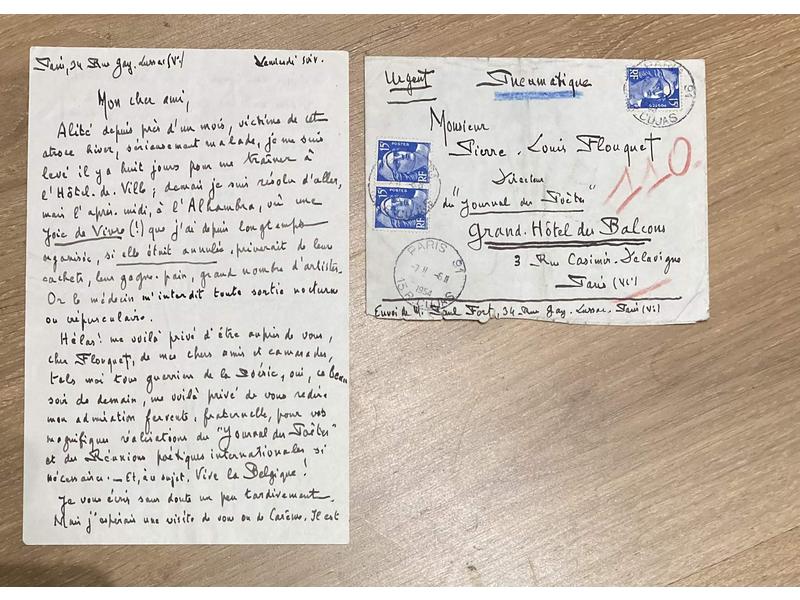 Paris, 34 Rue Gay-Lussac (Vᵉ) Vendredi soir.
Mon cher ami,
Alité depuis près d'un mois, victime de cet
atroce hiver, sérieusement malade, je me suis
levé il y a huit jours pour me traîner à
l'Hôtel-de-Ville; demain je suis résolu d'aller,
mais l'après-midi, à l'Alhambra, où une
Joie de Vivre (!) que j'ai depuis longtemps
organisée, si elle était annulée, priverait de leurs
cachets, leur gagne-pain, grand nombre d'artistes.
Or le médecin m'interdit toute sortie nocturne
ou crépusculaire.
Hélas! me voilà privé d'être auprès de vous,
cher Flouquet, de mes chers amis et camarades,
tels moi tous guerriers de la Poésie, oui, ce beau
soir de demain, me voilà privé de vous redire
mon admiration fervente, fraternelle, pour vos
magnifiques réalisations du "Journal des Poètes"
et des Réunions poétiques internationales si
nécessaires. — Et, à ce sujet, Vive la Belgique!
Je vous écris sans doute un peu tardivement.
Mais j'espérais une visite de vous ou de Carême. Il est
Urgent Pneumatique
Monsieur
Pierre-Louis Flouquet
Directeur
du "Journal des Poètes"
Grand-Hôtel des Balcons
3 Rue Casimir-Delavigne
Paris (VIᵉ)
Envoi de M. Paul Fort, 34 Rue Gay-Lussac, Paris (Vᵉ)
110
15 POSTES RF
15 RF
15 POSTES RF
PARIS 91
CUJAS
PARIS 91
7 H -6 II
1954
15 R. CUJAS